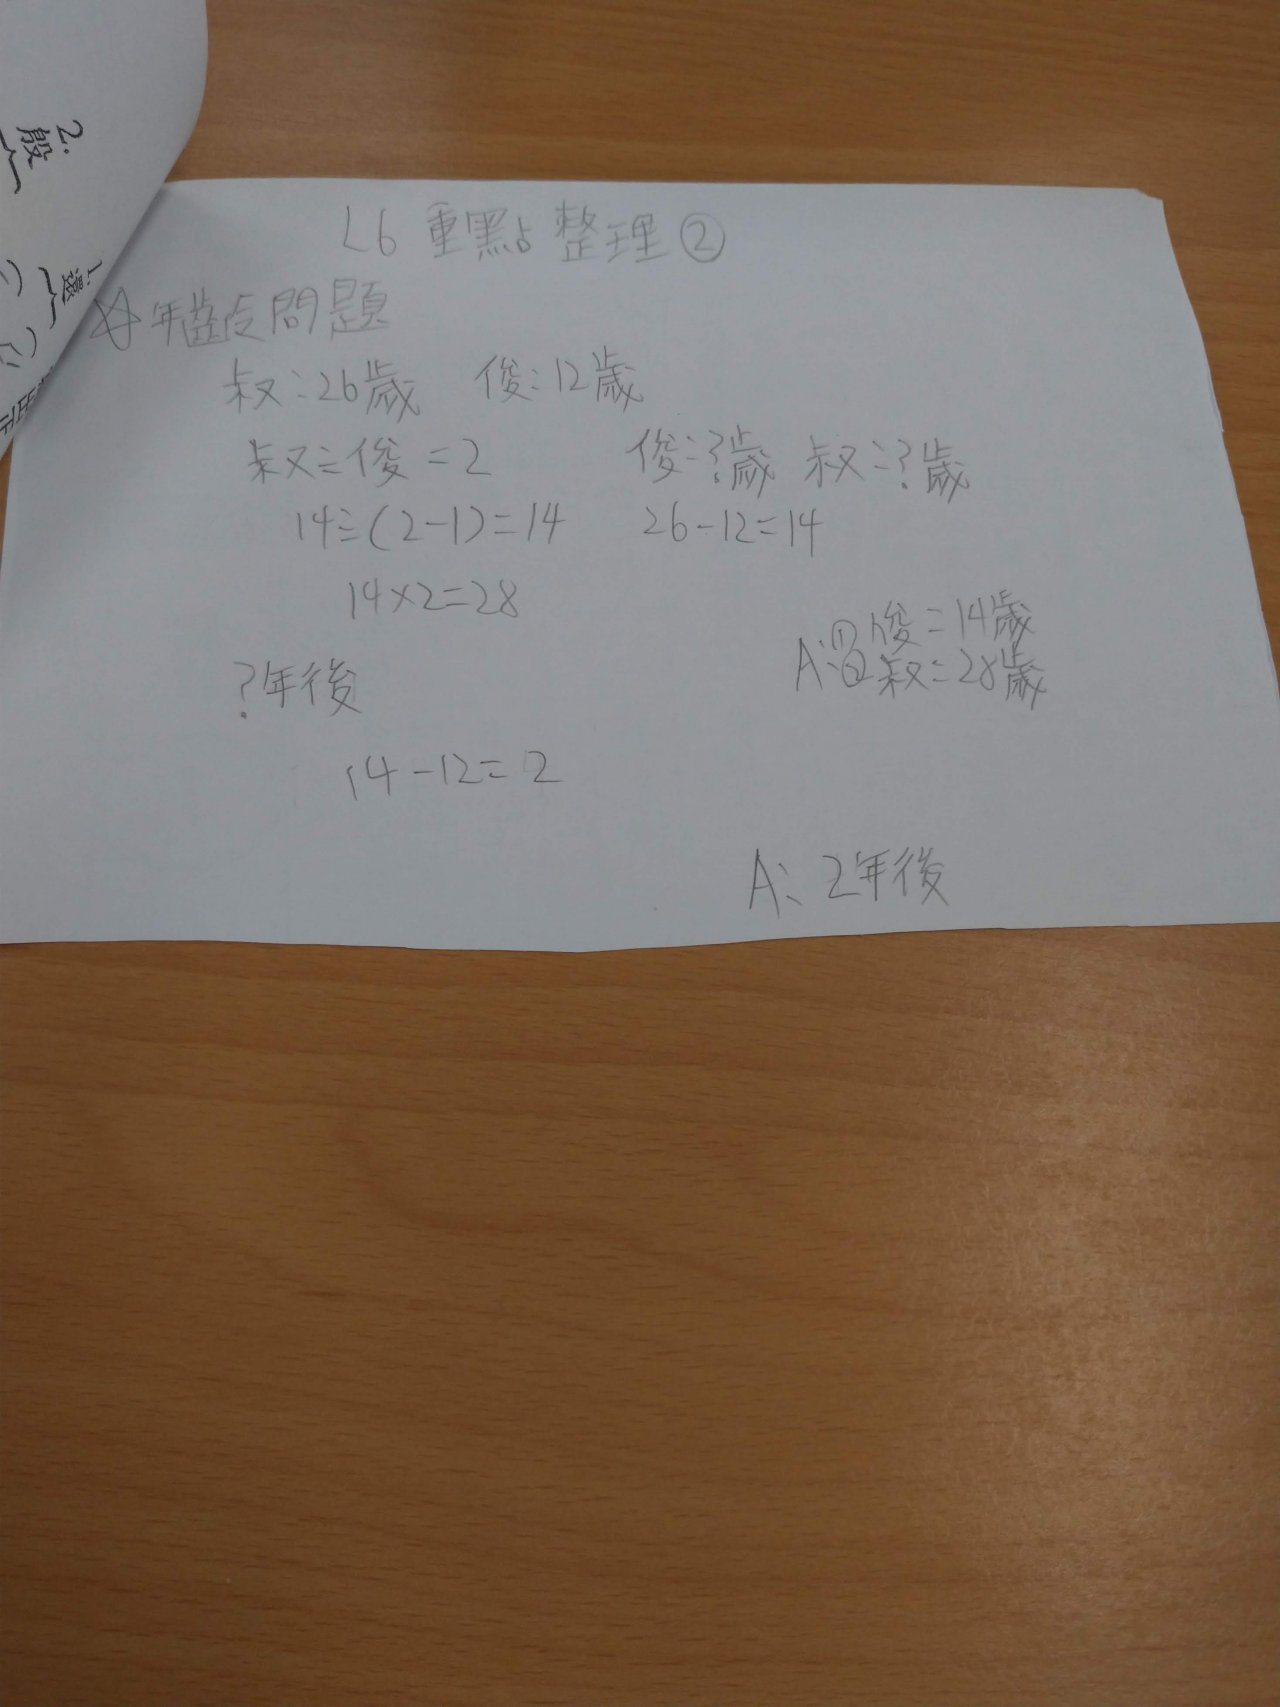 L6 重點整理②
☆年齡問題
叔:26歲 俊:12歲
叔÷俊=2 俊=?歲 叔=?歲
14÷(2-1)=14 26-12=14
14×2=28
A:①俊=14歲
②叔=28歲
?年後
14-12=2
A:2年後
2.殷
1.還